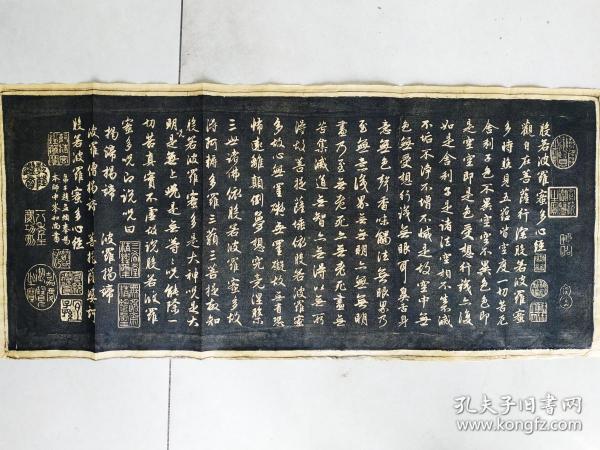 般若波羅蜜多心經
觀自在菩薩行深般若波羅蜜
多時照見五蘊皆空度一切苦厄
舍利子色不異空空不異色色即
是空空即是色受想行識亦復
如是舍利子是諸法空相不生不滅
不垢不淨不增不減是故空中無
色無受想行識無眼耳鼻舌身
意無色聲香味觸法無眼界乃
至無意識界無無明亦無無明
盡乃至無老死亦無老死盡無
苦集滅道無智亦無得以無所
得故菩提薩埵依般若波羅蜜
多故心無罣礙無罣礙故無有恐
怖遠離顛倒夢想究竟涅槃
三世諸佛依般若波羅蜜多故
得阿耨多羅三藐三菩提故知
般若波羅蜜多是大神咒是大
明咒是無上咒是無等等咒能除一
切苦真實不虛故說般若波羅
蜜多咒即說咒曰
揭諦揭諦 波羅揭諦
波羅僧揭諦 菩提薩婆訶
般若波羅蜜多心經
孔夫子旧书网
www.kongfz.com